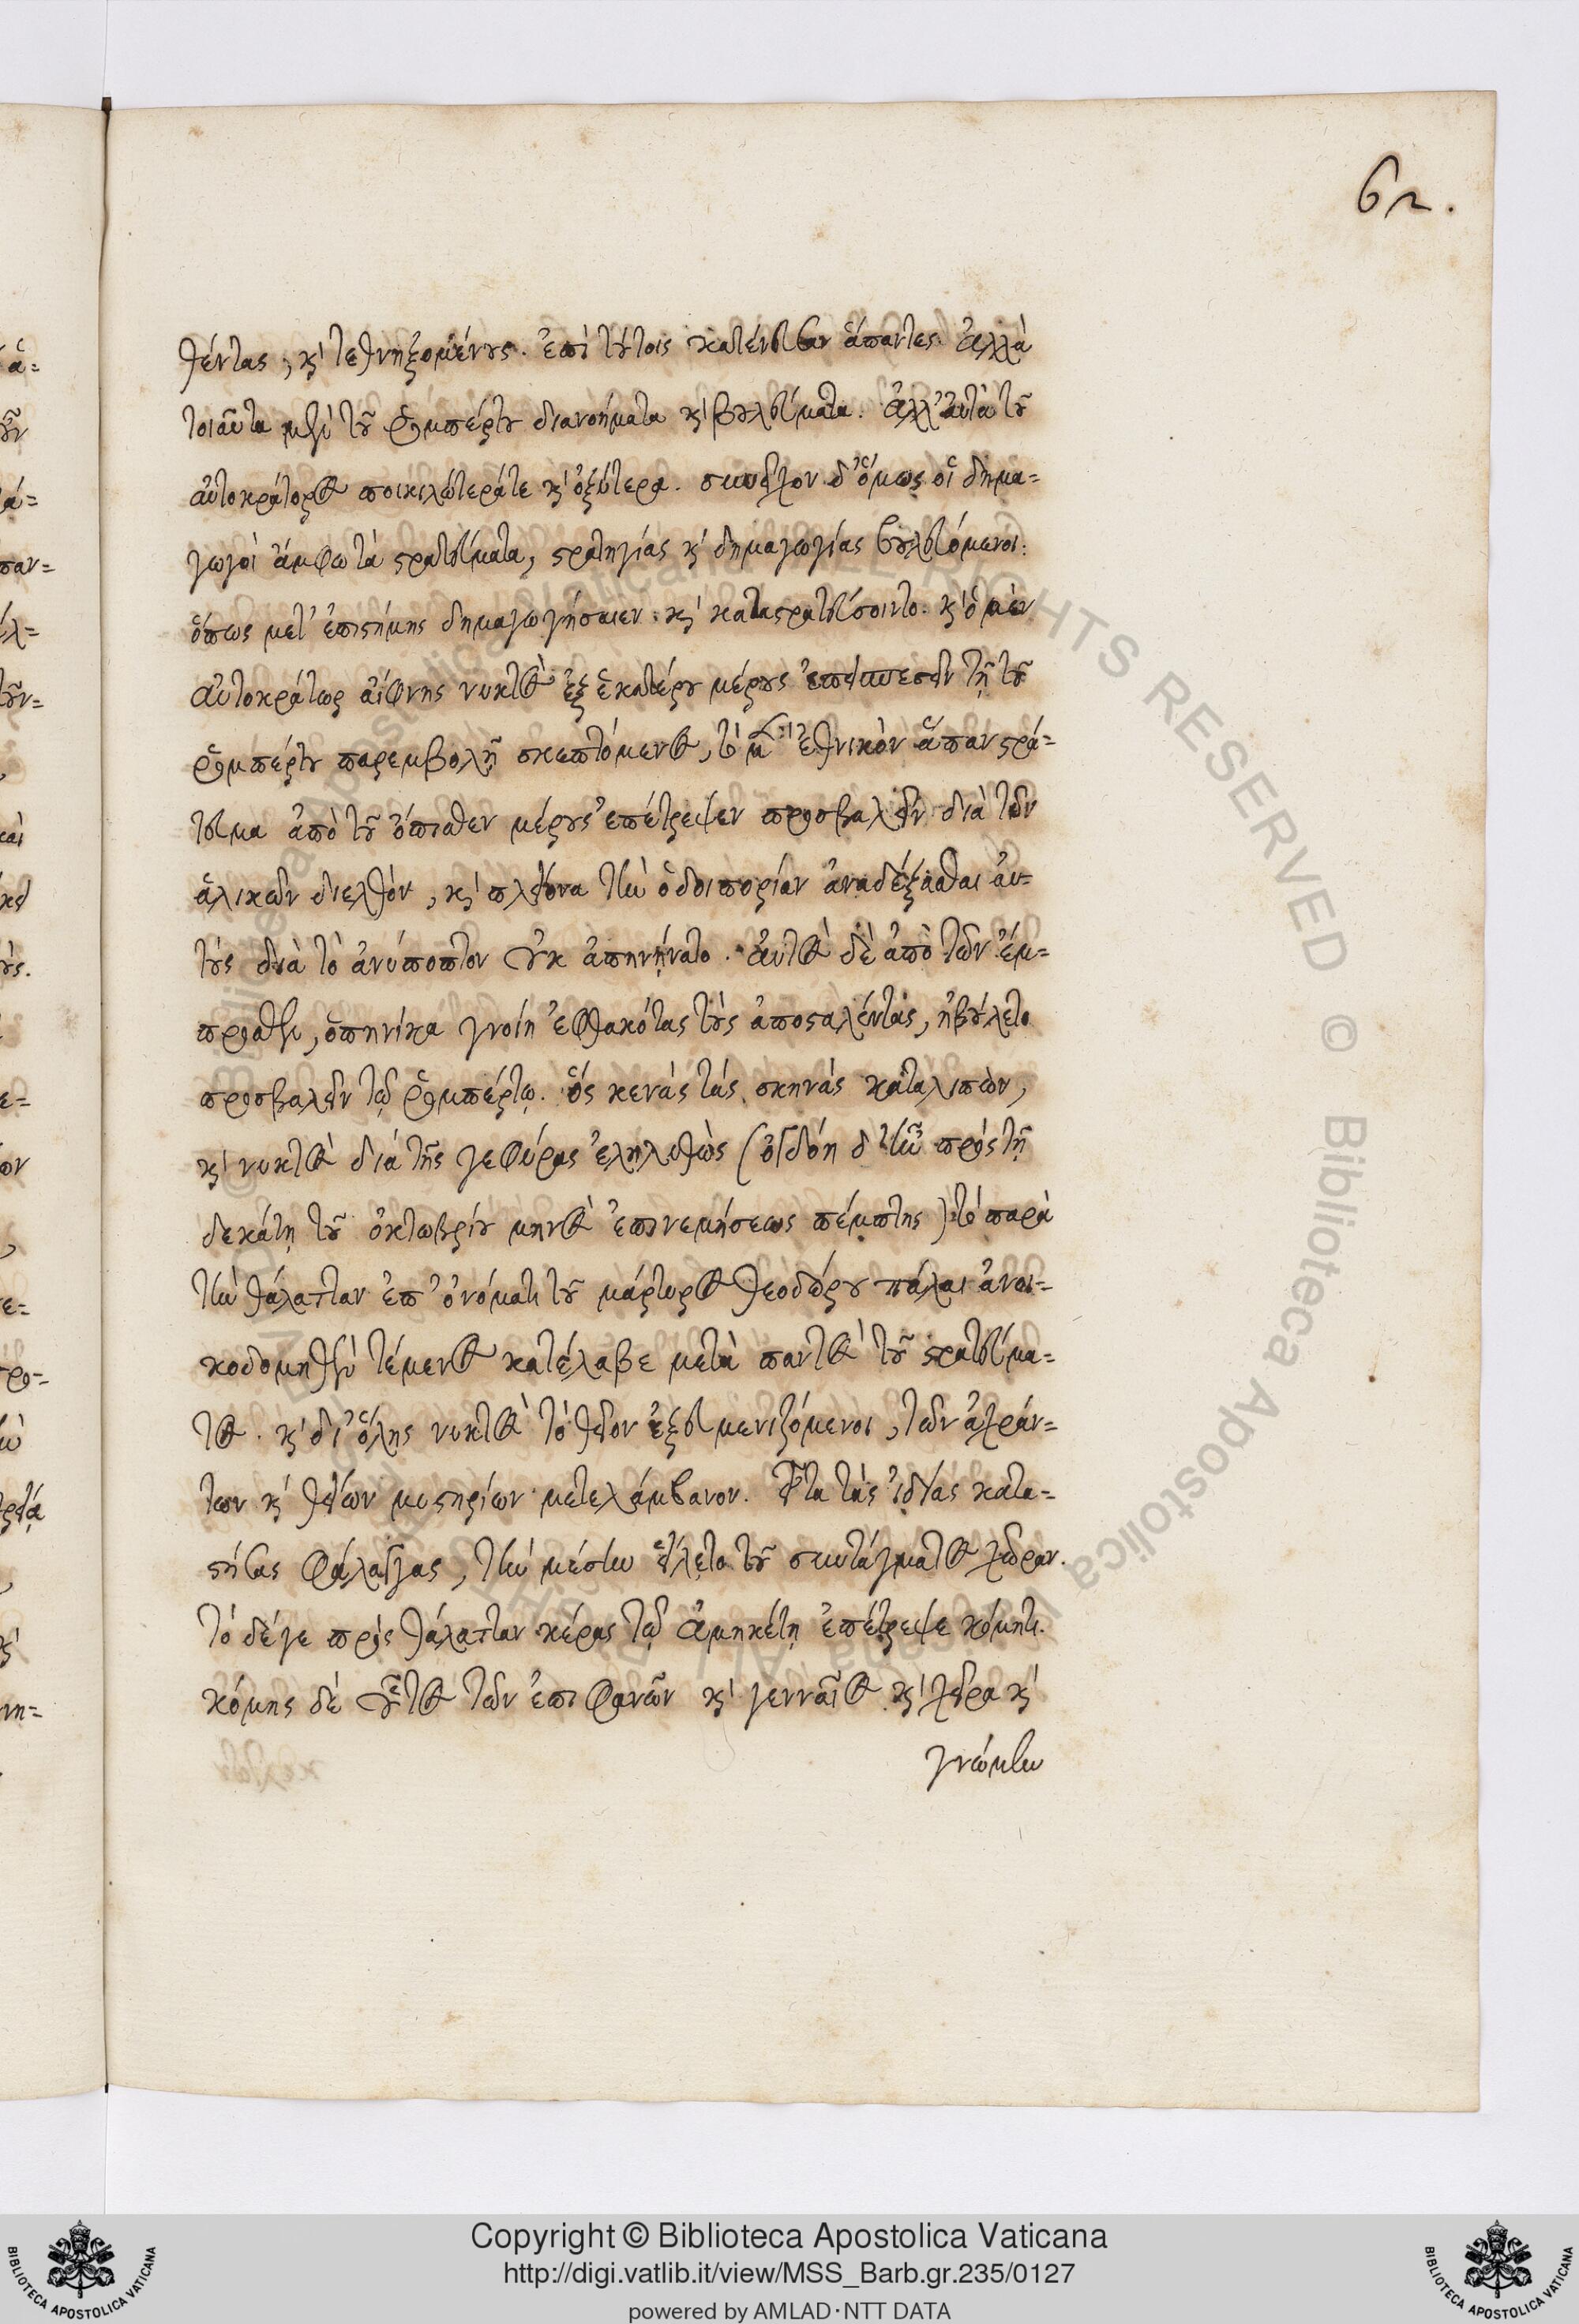 62.
θέντας, κ' τεθνηξομένους. ἐπὶ τούτοις κατένευσαν ἅπαντες. ἀλλὰ
τοιαῦτα μὲν τοῦ ῥομπέρτου διανοήματα κ' βουλεύματα. ἀλλ' αὐτὰ τοῦ
αὐτοκράτορος ποικιλώτερά τε κ' ὀξύτερα. συνεῖχον δ' ὅμως οἱ δημα=
γωγοὶ ἄμφω τὰ στρατεύματα, στρατηγίας κ' δημαγωγίας βουλευόμενοι:
ὅπως μετ' ἐπιστήμης δημαγωγήσαιεν κ' καταστρατεύσοιντο. κ' ὁ μὲν
αὐτοκράτωρ αἴφνης νυκτὸς ἐξ ἑκατέρου μέρους ἐπεισπεσεῖν τῇ τοῦ
ῥομπέρτου παρεμβολῇ σκεπτόμενος, τὸ μὲν ἐθνικὸν ἅπαν στρά=
τευμα ἀπὸ τοῦ ὄπισθεν μέρους ἐπέτρεψεν προσβαλεῖν διὰ τῶν
ἁλικῶν διελθόν, κ' πλείονα τὴν ὁδοιπορίαν ἀναδέξασθαι αὐ=
τοὺς διὰ τὸ ἀνύποπτον οὐκ ἀπηνήνατο. αὐτὸς δὲ ἀπὸ τῶν ἔμ=
προσθεν, ὁπηνίκα γνοίη ἐφθακότας τοὺς ἀποσταλέντας, ἠβούλετο
προσβαλεῖν τῷ ῥομπέρτῳ. ὃς κενὰς τὰς σκηνὰς καταλιπὼν,
κ' νυκτὸς διὰ τῆς γεφύρας ἐληλυθὼς (ὀγδόη δ' ἦν πρὸς τῇ
δεκάτῃ τοῦ ὀκτωβρίου μηνὸς ἐπινεμήσεως πέμπτης) τὸ παρὰ
τὴν θάλατταν ἐπ' ὀνόματι τοῦ μάρτυρος θεοδώρου πάλαι ἀνοι=
κοδομηθὲν τέμενος κατέλαβε μετὰ παντὸς τοῦ στρατεύμα=
τος. κ' δι' ὅλης νυκτὸς τὸ θεῖον ἐξευμενιζόμενοι, τῶν ἀχράν=
των κ' θείων μυστηρίων μετελάμβανον. εἶτα τὰς ἰδίας κατα=
στήσας φάλαγγας, τὴν μέσην εἵλετο τοῦ συντάγματος χώραν.
τὸ δέ γε πρὸς θάλατταν κέρας τῷ ἀμηκέτῃ ἐπέτρεψε κόμητι.
κόμης δὲ οὗτος τῶν ἐπιφανῶν κ' γενναῖος κ' χεῖρα κ'
γνώμην